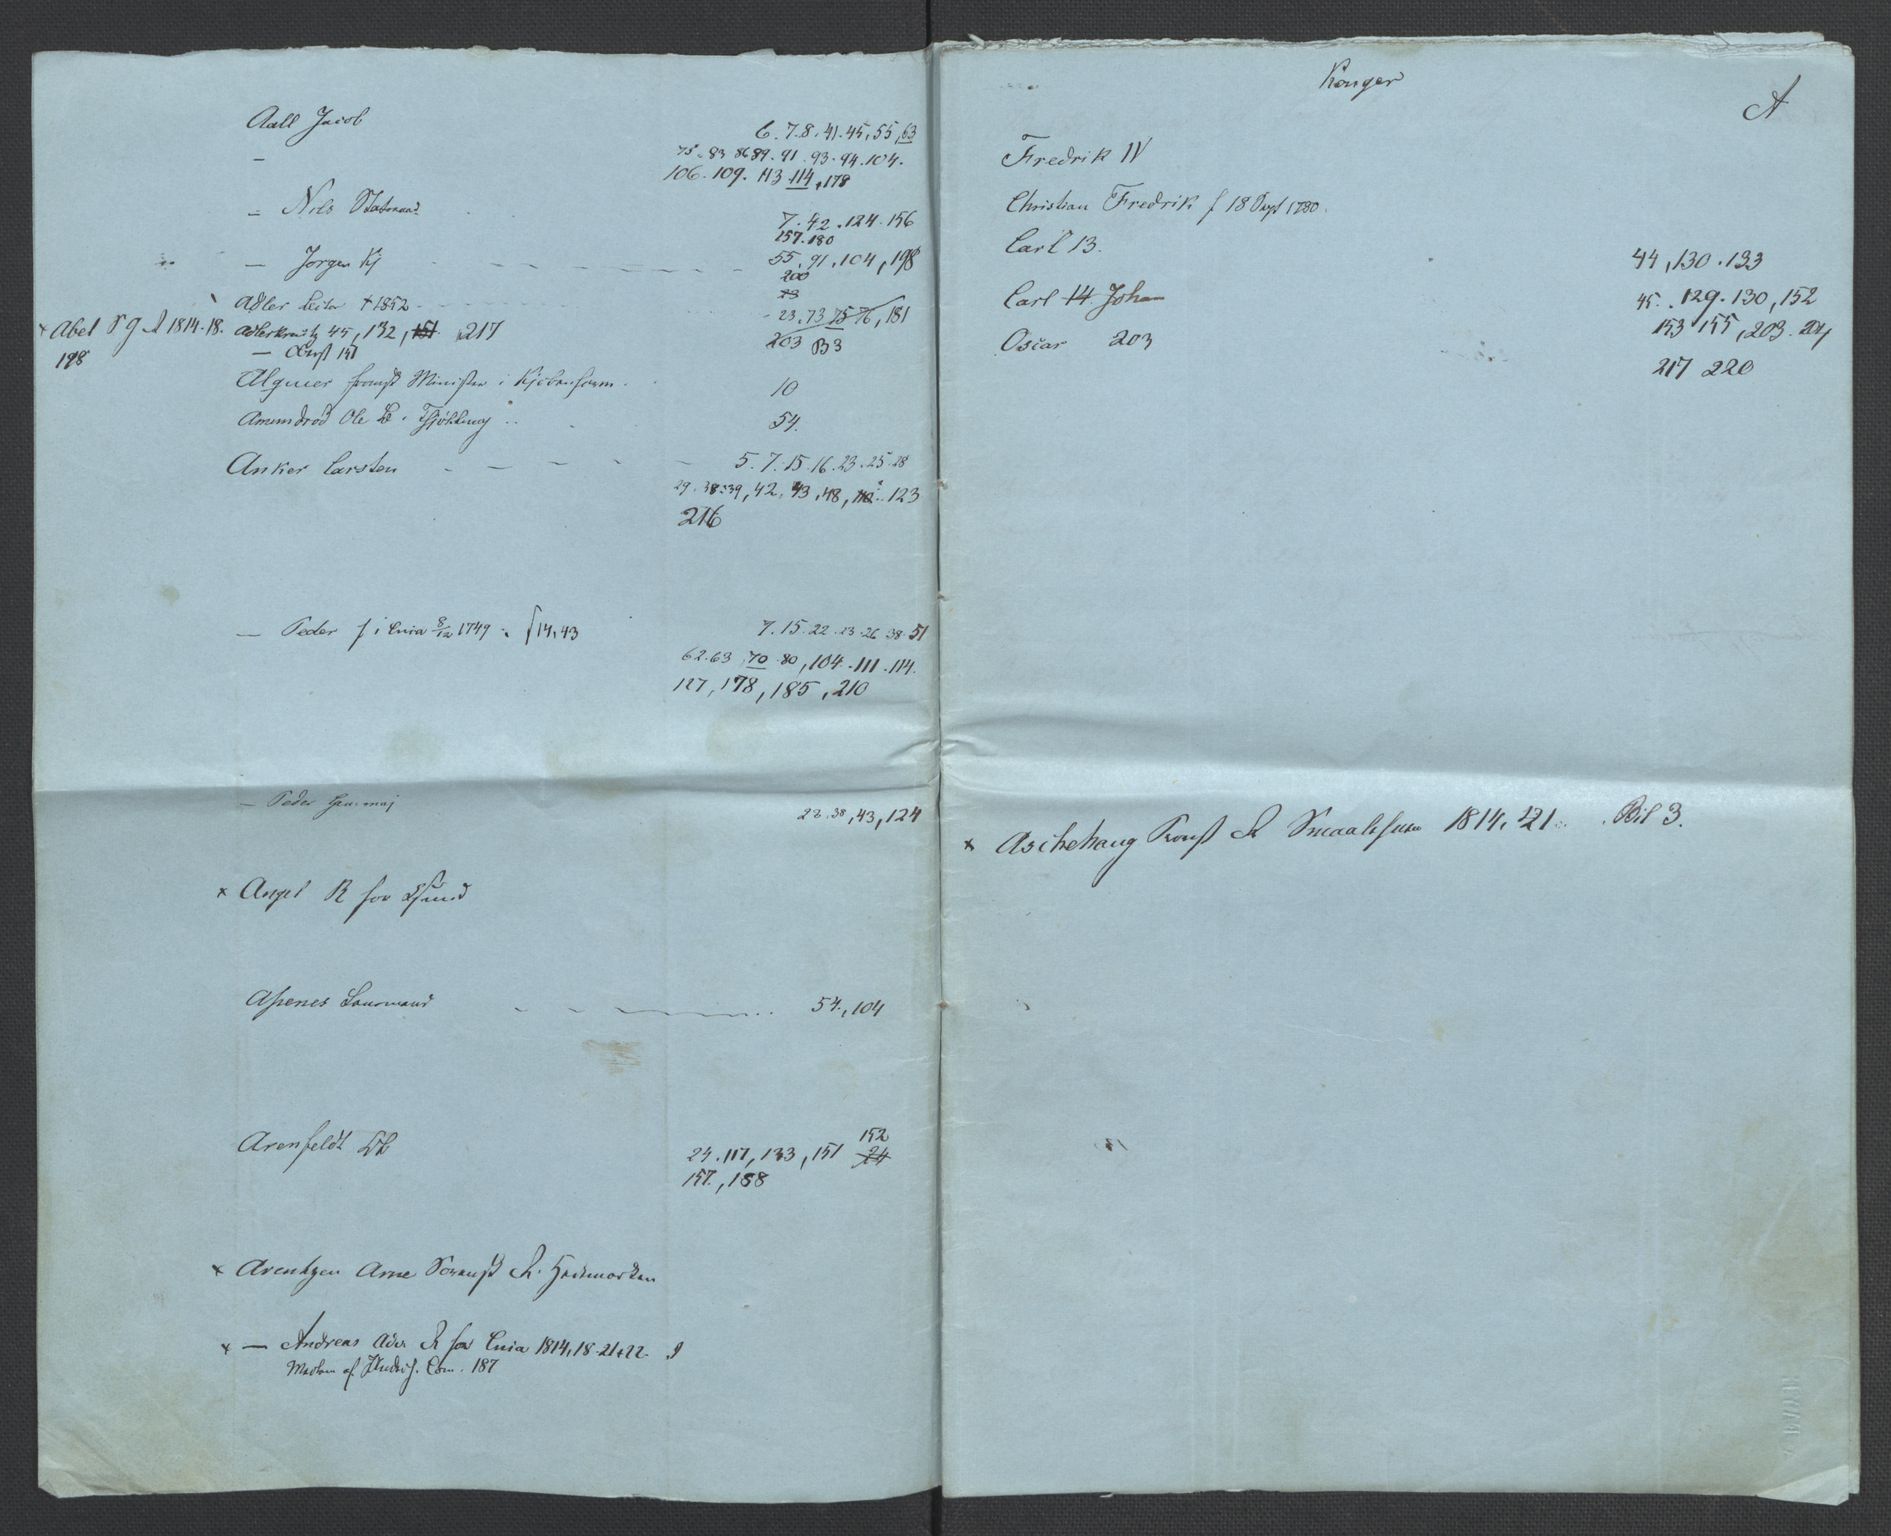 Aall Jacob 6. 7. 8. 41. 45, 55, 63
— 75. 83 86 89. 91. 93. 94. 104.
106. 109. 113 114, 178
— Nils Statsraad 7. 42. 124. 156
157. 180
— Jørgen Kj 55. 91. 104, 198
200
Adler 1852 23. 73 75 76, 181
× Abel R 1814-18.
198
Adlerkreutz 45, 132, 151 217
— Oberst 151
203 B3
Alquier fransk Minister i Kjøbenhavn 10
Amundrød Ole i 54.
Anker Carsten 5. 7. 15. 16. 23. 25. 28
29. 38. 39, 42, 43, 48, 110. 123
216
— Peder f i 8/12 1749 14, 43 7. 15. 22. 23. 26. 38. 51
62. 63 70. 80, 104. 111. 114.
127, 178, 185, 210
— Peder Gen. maj 22. 38, 43, 124
× Angel R for
Aspenes Lensmand 54, 104
Arenfeldt 24. 117, 133, 151 24
152
157, 188
× Arentzen Arne R. Hedemarken
× — Andreas R for 1814, 18-21+22.
Medlem af Com. 187
Konger
A
Fredrik IV
Christian Fredrik f 18 Sept 1780.
Carl 13. 44, 130. 133
Carl 14 Johan 45. 129. 130, 152
153 155, 203. 204
Oscar 203
217 220
× Aschehoug Provst R Smaalehnene 1814, 21 Bil 3.